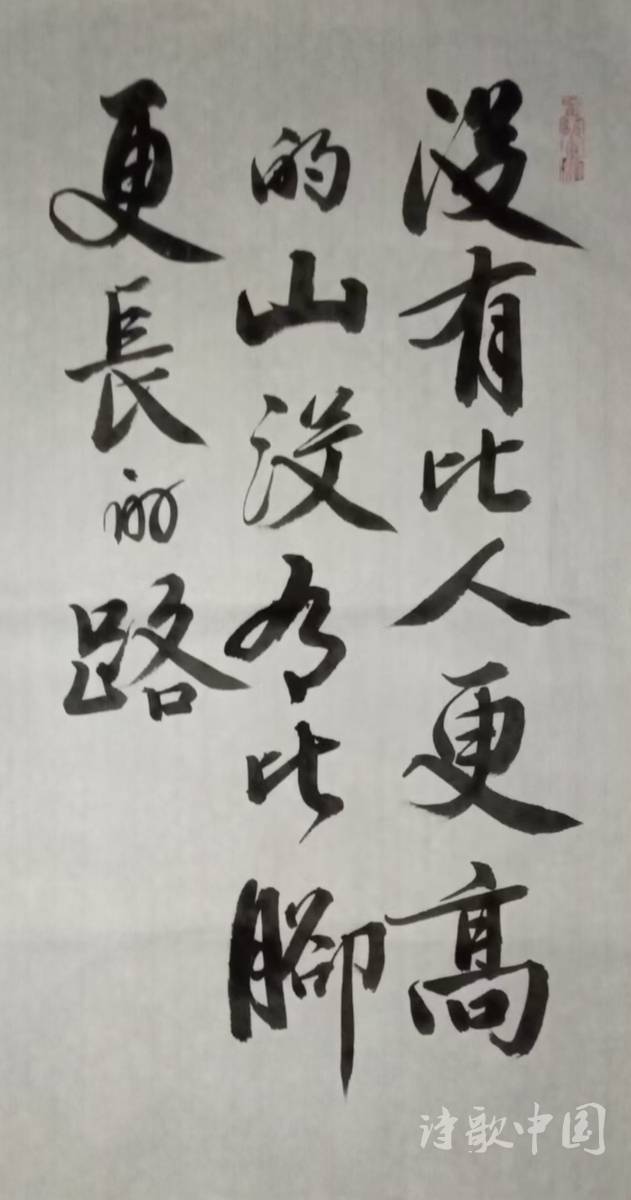 没有比人更高
的山没有比腳
更長的路
诗歌中国